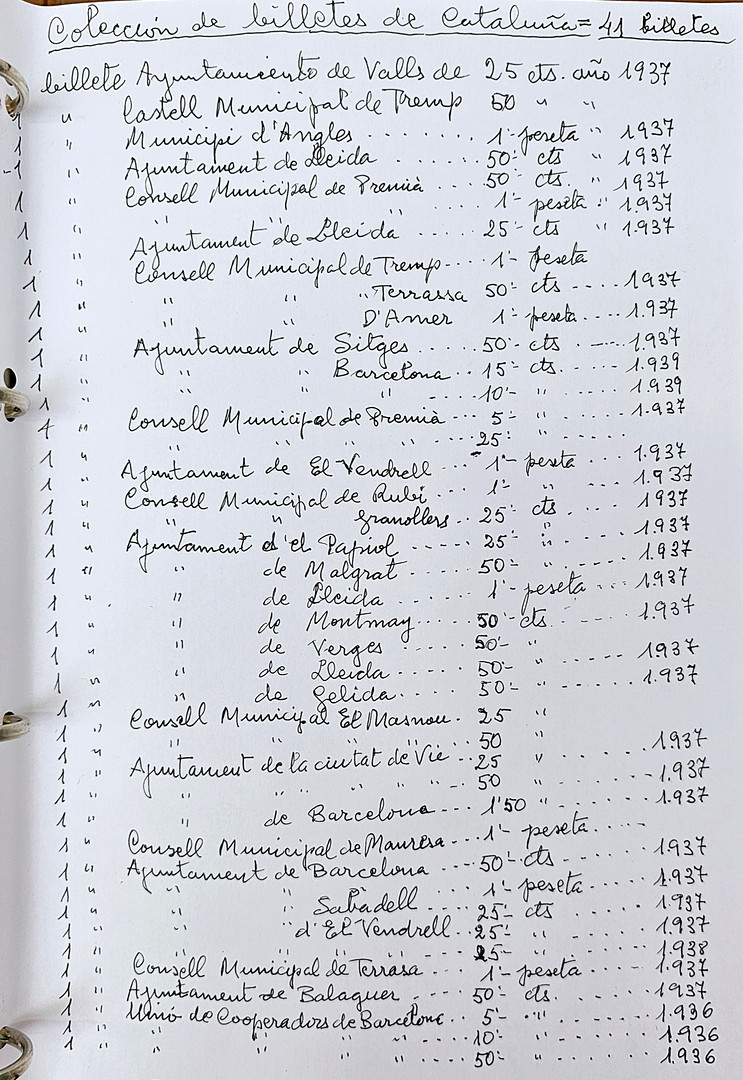 Colección de billetes de Cataluña = 41 billetes
billete Ayuntamiento de Valls de 25 cts. año 1937
1 " Castell Municipal de Tremp 50 " "
1 " Municipi d'Angles ....... 1'- peseta " 1937
1 " Ajuntament de Lleida ..... 50'- cts " 1937
1 " Consell Municipal de Premià ... 50'- cts. " 1937
1 " " " " .... 1'- peseta " 1.937
1 " Ajuntament de Lleida ..... 25'- cts " 1.937
1 " Consell Municipal de Tremp.... 1'- peseta
1 " " " " Terrassa 50'- cts .... 1937
1 " " " D'Amer 1'- peseta.... 1.937
1 " Ajuntament de Sitges ..... 50'- cts. ..... 1.937
1 " " " Barcelona ... 15'- cts. ..... 1.939
1 " " " .....10'- " ..... 1.939
1 " Consell Municipal de Premià ... 5'- " ..... 1.937
1 " " " " ....25'- " ......
1 " Ajuntament de El Vendrell ..... 1'- peseta .... 1.937
1 " Consell Municipal de Rubi ... 1'- " ..... 1.937
1 " " " Granollers .. 25'- cts. ..... 1937
1 " Ajuntament d'el Papiol ..... 25'- " ..... 1.937
1 " " de Malgrat ..... 50'- " ..... 1.937
1 " " de Lleida ..... 1'- peseta ... 1.937
1 " " de Montmay ... 50'- cts. ..... 1.937
1 " " de Verges ..... 50'- "
1 " " de Lleida ..... 50'- " ..... 1.937
1 " " de Gelida ..... 50'- " ..... 1.937
1 " Consell Municipal El Masnou . 25 "
1 " " " " " ... 50 " ..... 1.937
1 " Ajuntament de la ciutat de Vic ... 25 " ..... 1.937
1 " " " " " " ... 50 " ..... 1.937
1 " " de Barcelona ... 1'50 " .....
1 " Consell Municipal de Manresa ... 1'- peseta.....
1 " Ajuntament de Barcelona ... 50'- cts ..... 1937
1 " " " " ... 1'- peseta .... 1.937
1 " " Sabadell ... 25'- cts ..... 1.937
1 " " d'El Vendrell .. 25'- " ..... 1.937
1 " " " " ... 25'- " ..... 1.938
1 " Consell Municipal de Terrasa ... 1'- peseta ..... 1.937
1 " Ajuntament de Balaguer ..... 50'- cts. ..... 1937
1 " Unió de Cooperadors de Barcelona 5'- " ..... 1.936
1 " " " " " ... 10'- " ..... 1.936
" " 50'- " ..... 1.936